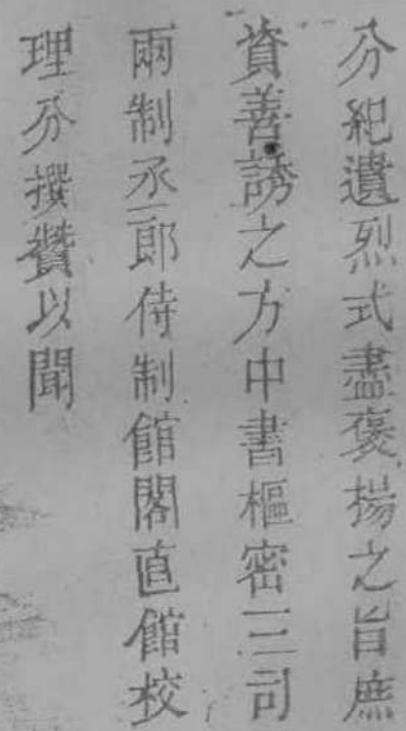 分紀遺烈式盡褒揚之旨庶
資善誘之方中書樞密三司
兩制丞郎侍制館閣直館校
理分撰贊以聞